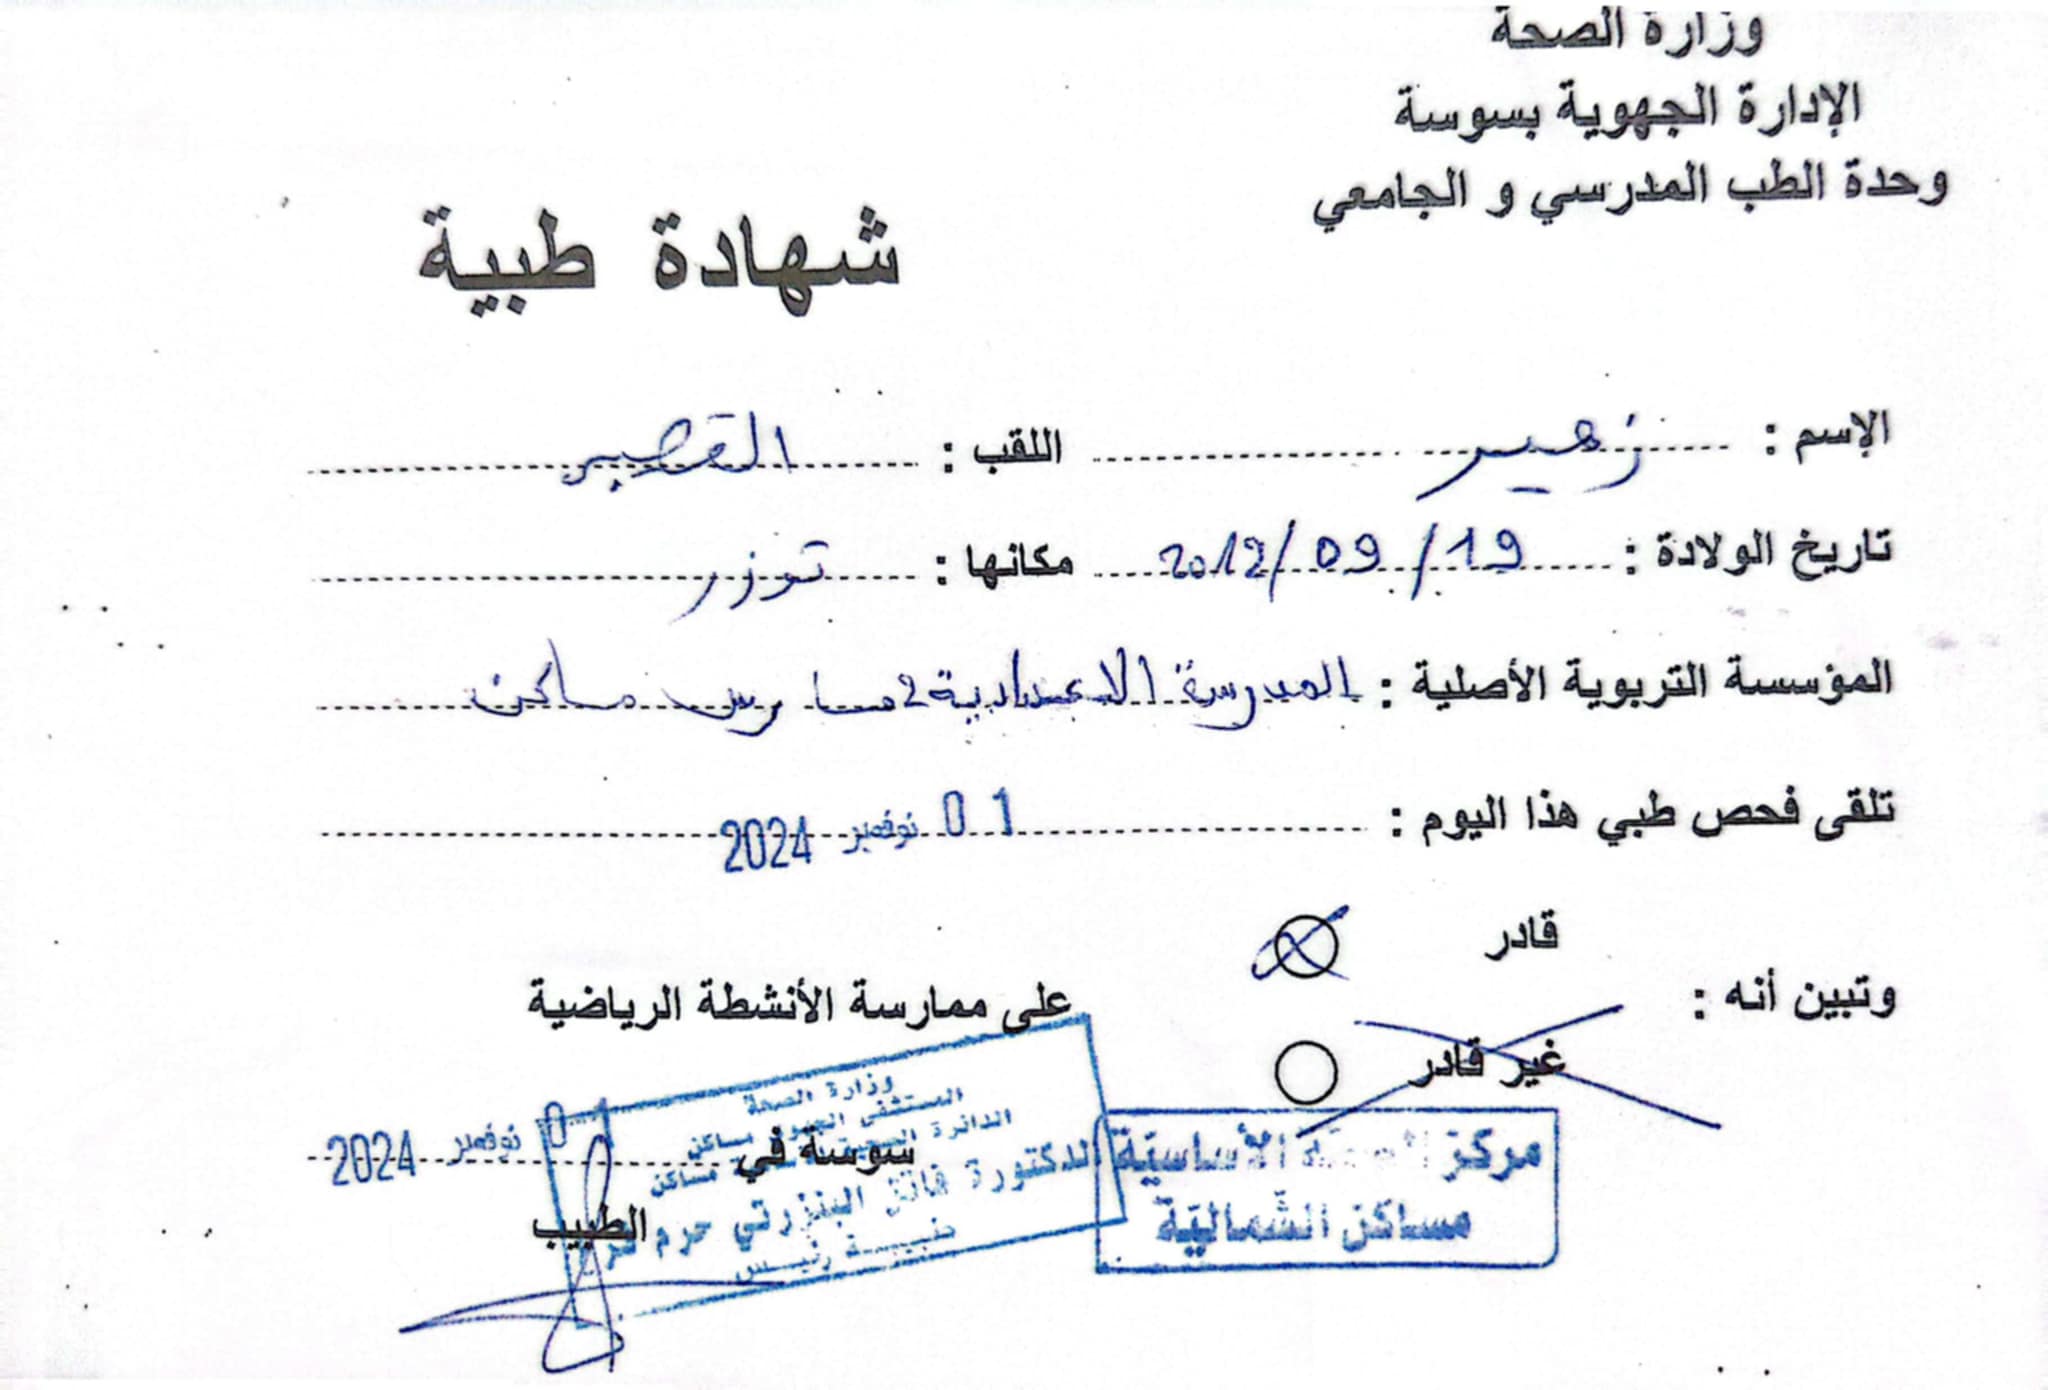 وزارة الصحة
الإدارة الجهوية بسوسة
وحدة الطب المدرسي و الجامعي
شهادة طبية
الإسم : زهير اللقب : القصير
تاريخ الولادة : 19/ 09 /2012 مكانها : توزر
المؤسسة التربوية الأصلية : المدرسة الاعدادية 2 مارس مساكن
تلقى فحص طبي هذا اليوم : 01 نوفمبر 2024
قادر
وتبين أنه : على ممارسة الأنشطة الرياضية
غير قادر
وزارة الصحة
المستشفى الجهوي مساكن
الدائرة الصحية مساكن
سوسة في 01 نوفمبر 2024
الدكتورة فاتن البنزرتي حرم
الطبيب
طبيبة رئيس
مركز الأساسية
مساكن الشمالية